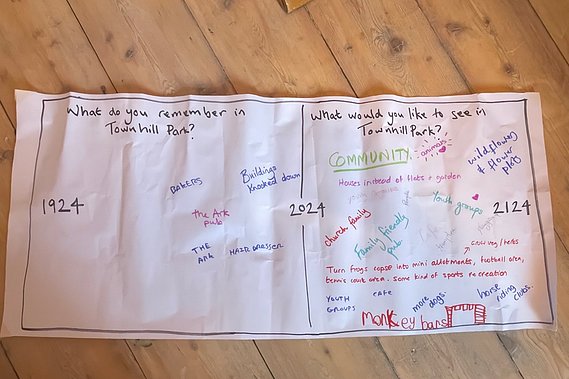 What do you remember in
Townhill Park?
1924
BAKERS
Buildings
knocked down
the Ark
pub
THE
Ark
HAIRDRESSER
2024
What would you like to see in
Townhill Park?
COMMUNITY.
animals
wildflower
& flower
plots
Houses instead of flats + garden
Youth groups
church family
Family friendly
pub.
2124
Grow veg/herbs
Turn frogs copse into mini allotments, football area,
tennis court area. some kind of sports recreation
YOUTH
GROUPS
CAFE
more dogs.
horse
riding
clubs.
monkey bars